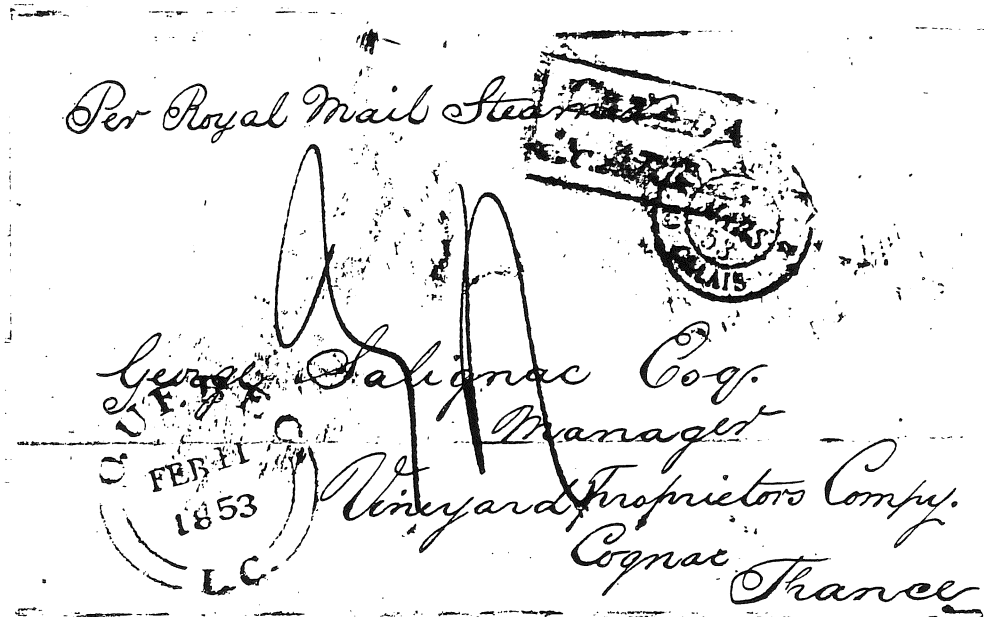 Per Royal Mail Steamer
George Salignac Esq.
Manager
Vineyard Proprietors Compy.
Cognac
France
QUEBEC
FEB 11
1853
L.C.
CALAIS